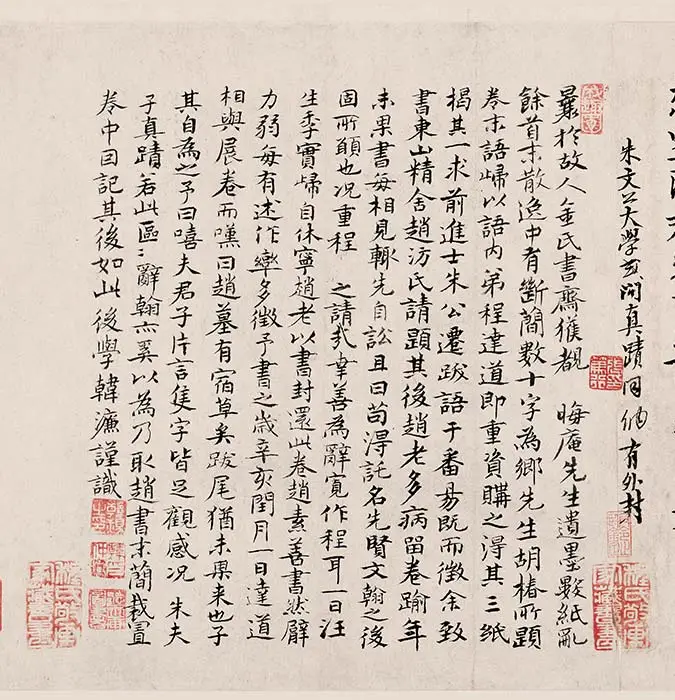 朱文公大學或問真蹟同納有外封
曩於故人金氏書齋獲覩 晦庵先生遺墨數紙亂
餘首末散逸中有斷簡數十字為鄉先生胡椿所題
卷末語歸以語內弟程達道即重資購之得其三紙
楬其一求前進士朱公遷跋語于番昜既而徵余致
書東山精舍趙汸氏請題其後趙老多病留卷踰年
未果書每相見輒先自訟且曰苟得託名先賢文翰之後
固所願也况重程 之請哉幸善為辭寬作程耳一日汪
生季實歸自休寧趙老以書封還此卷趙素善書然臂
力弱每有述作率多徵予書之歲辛亥閏月一日達道
相與展卷而嘆曰趙墓有宿草矣跋尾猶未果来也子
其自為之予曰嘻夫君子片言隻字皆足觀感况 朱夫
子真蹟若此區〻辭翰亦奚以為乃取趙書末簡裁置
卷中因記其後如此後學韓濂謹識